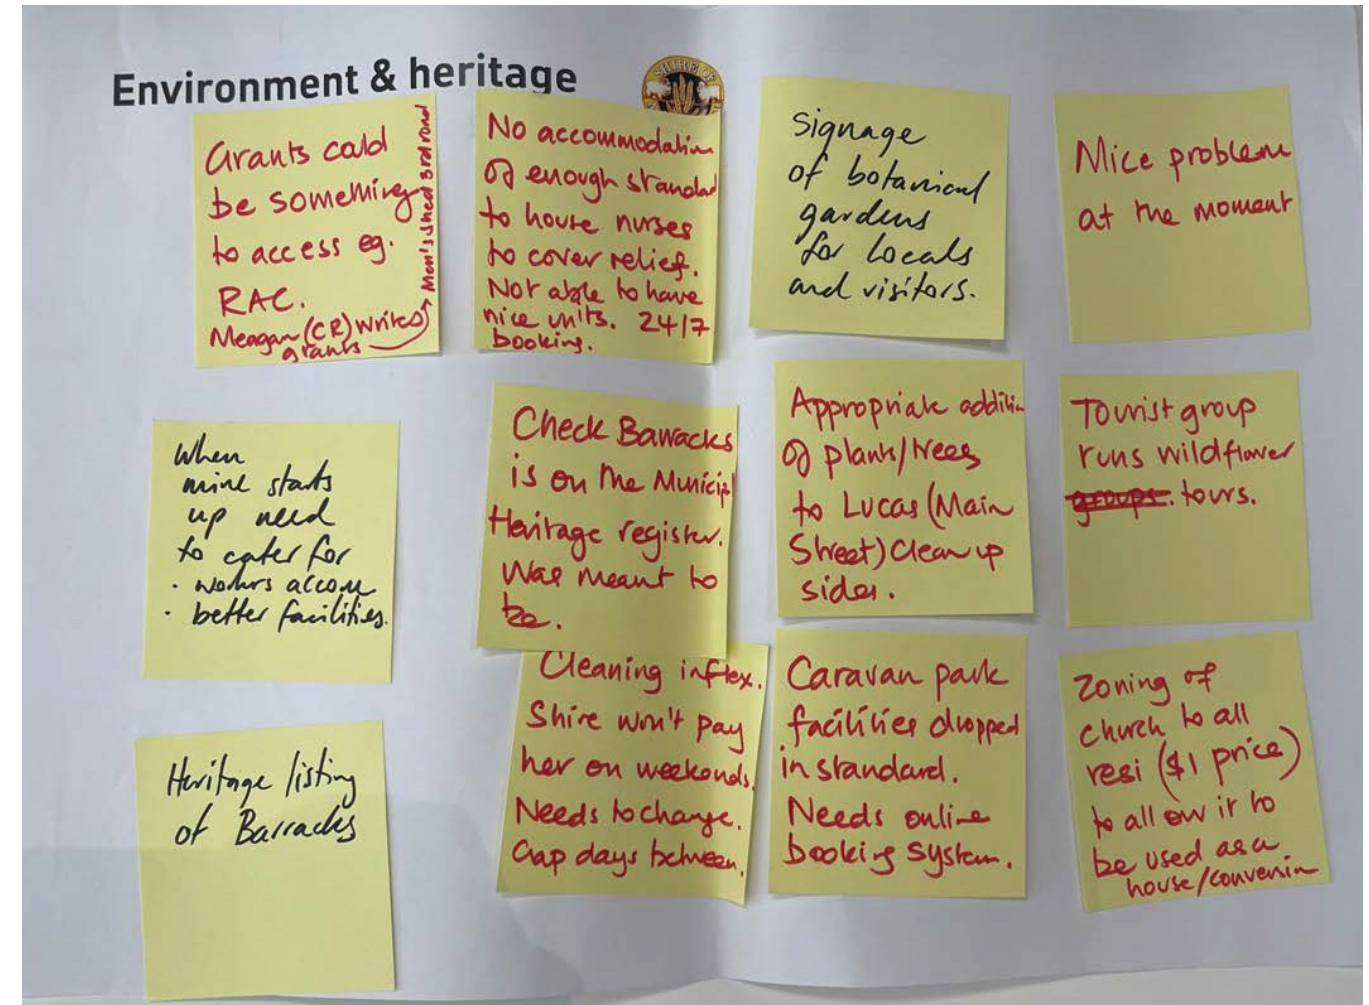 Environment & heritage
SHIRE OF
Grants could
be something
to access eg.
RAC.
Meagan (CR) writes
grants
Men's Shed 3rd round
No accommodation
of enough standard
to house nurses
to cover relief.
Not able to have
nice units. 24/7
booking.
Signage
of botanical
gardens
for locals
and visitors.
Mice problem
at the moment
When
mine starts
up need
to cater for
· workrs accom
· better facilities.
Check Barracks
is on the Municipl
Heritage register.
Was meant to
be.
Appropriate additin
of plants/trees
to Lucas (Main
Street) Clean up
sides.
Tourist group
runs wildflower
groups. tours.
Heritage listing
of Barracks
Cleaning inflex.
Shire won't pay
her on weekends.
Needs to change.
Gap days between.
Caravan park
facilities dropped
in standard.
Needs online
booking system.
Zoning of
church to all
resi ($1 price)
to allow it to
be used as a
house/conversin